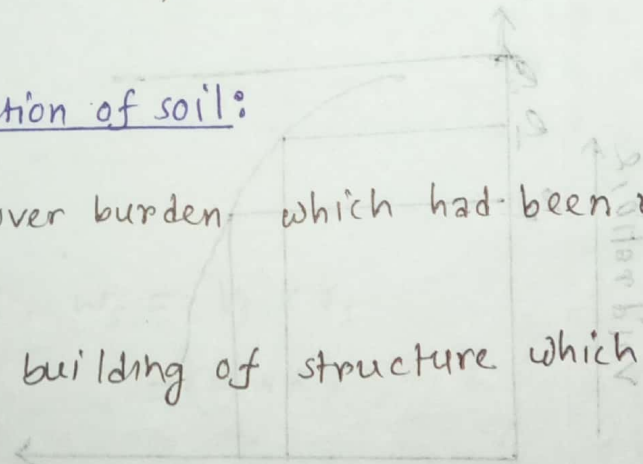 tion of soil:
ver burden which had been
building of structure which